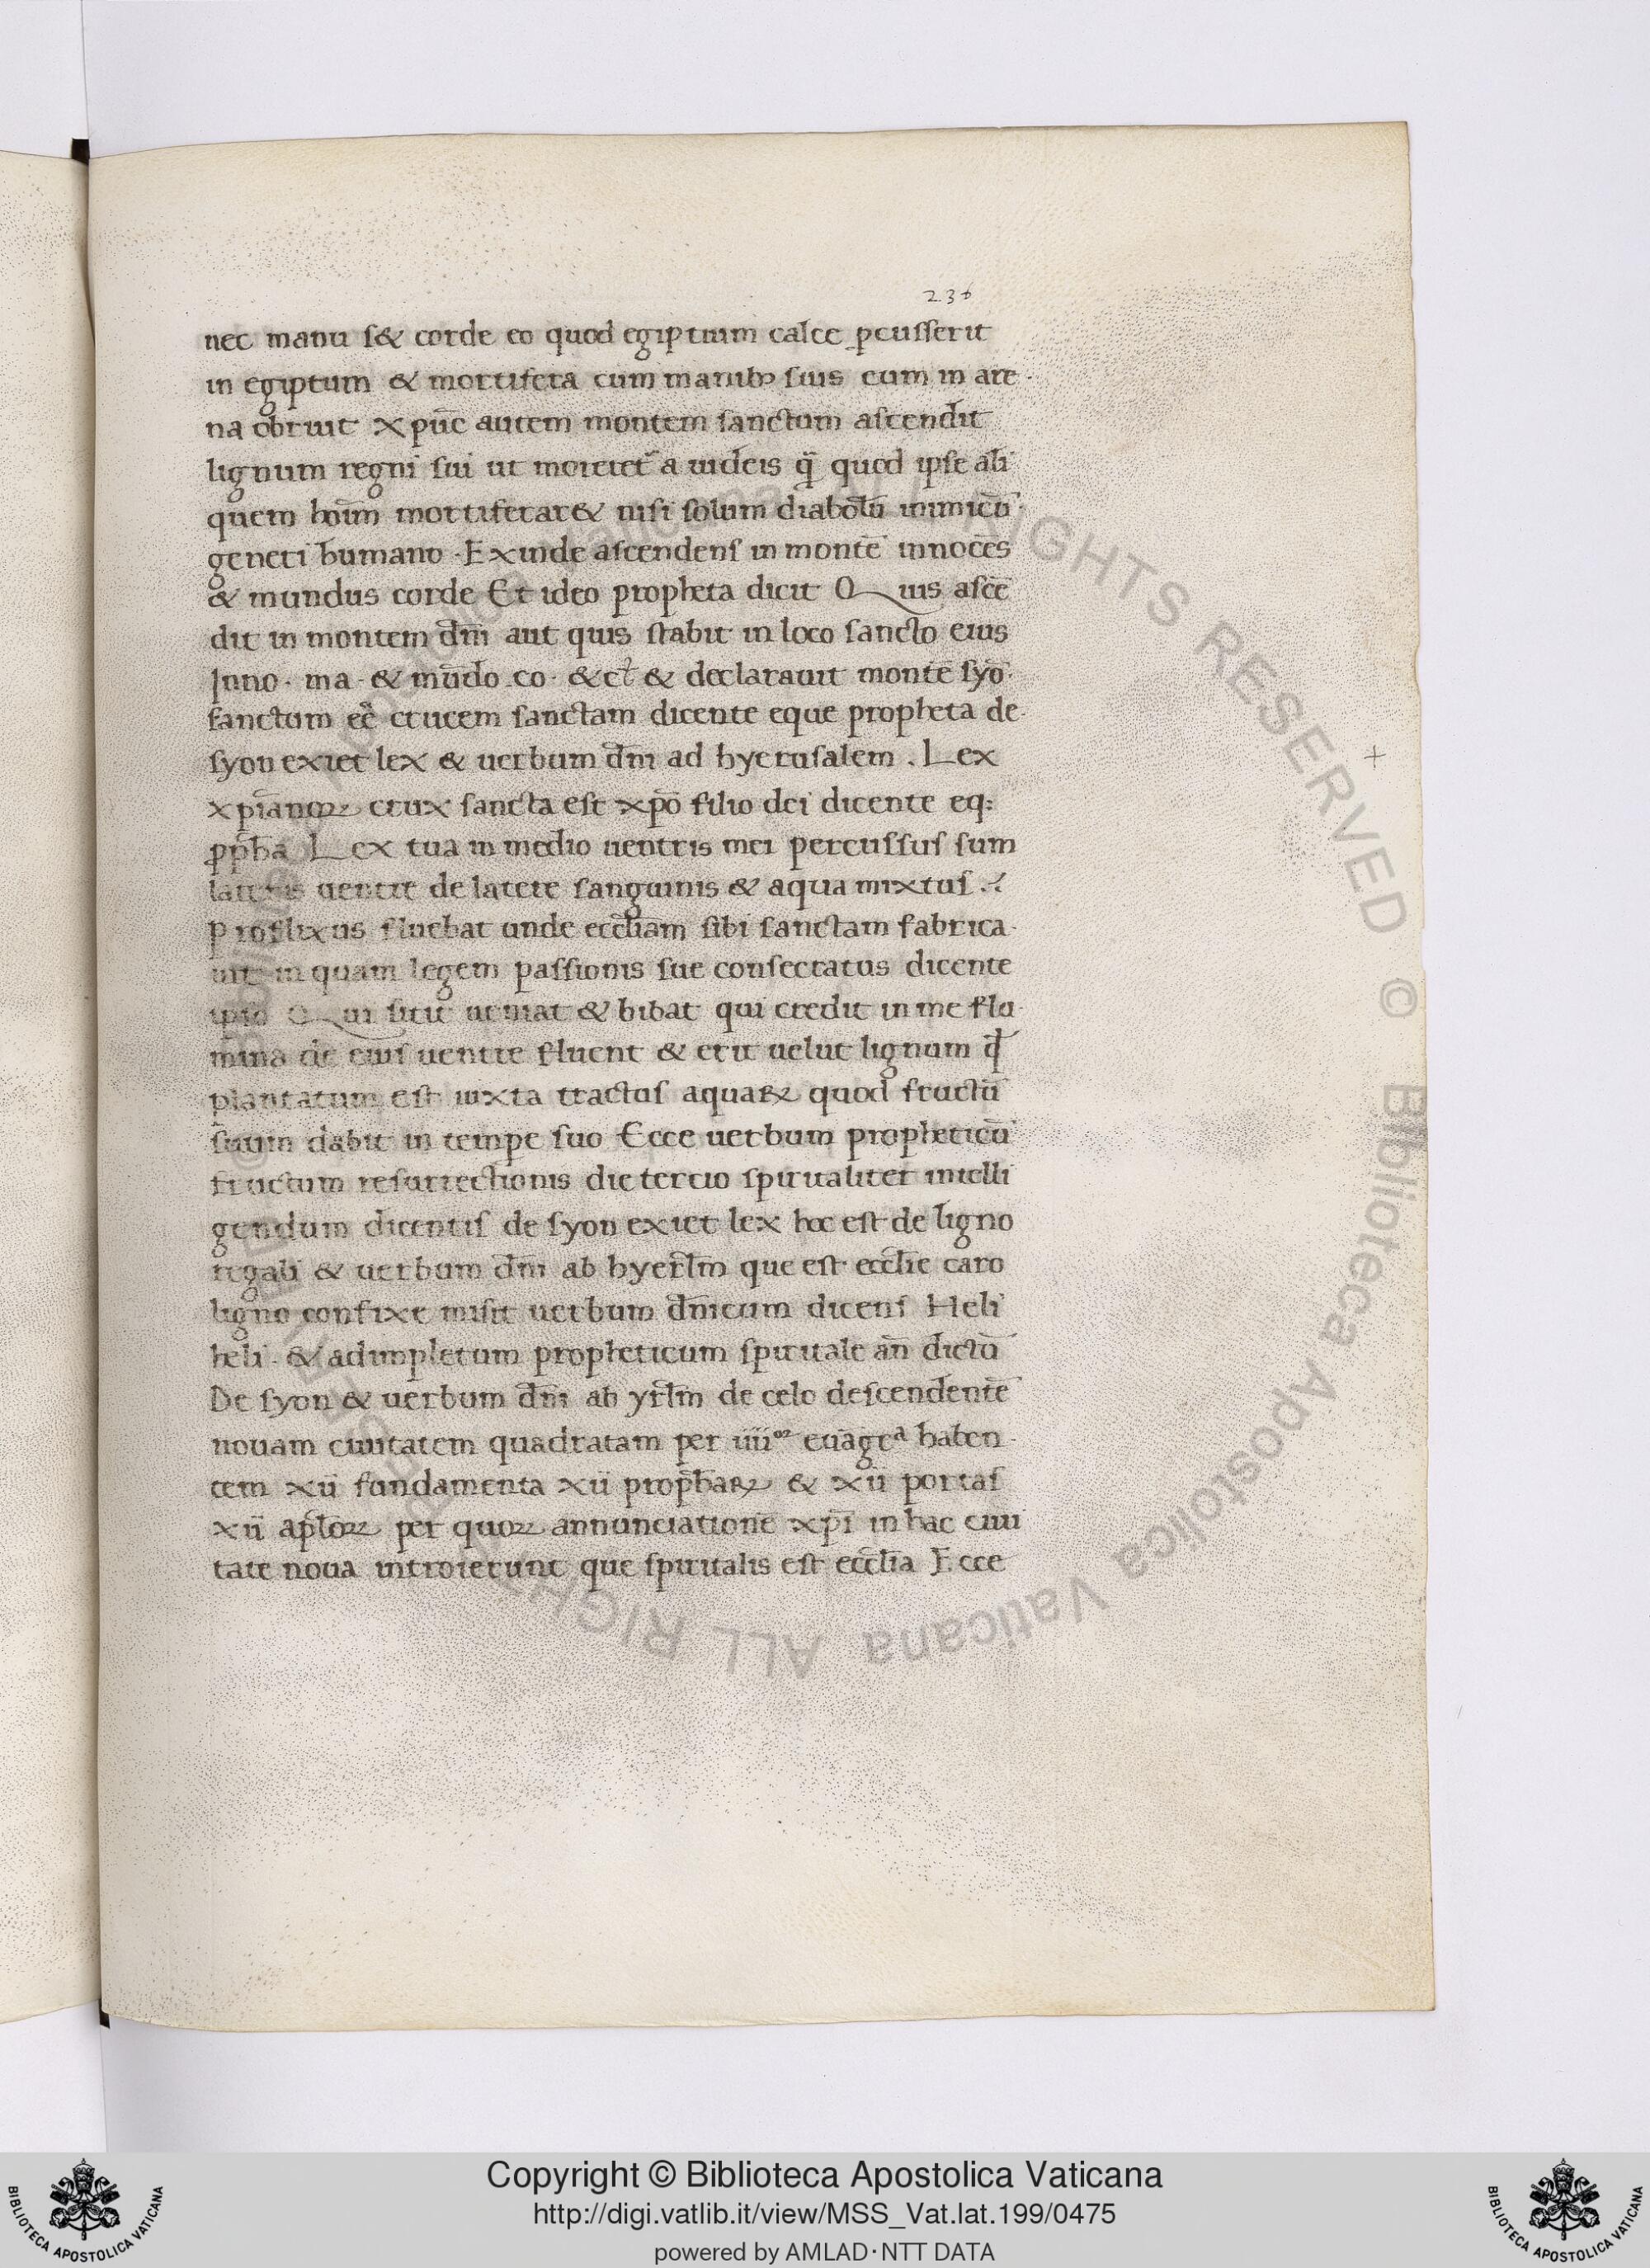 236
nec manu s& corde eo quod egiptium calce ꝑcusserit
in egiptum & mortifera cum manibꝫ suis eum in are-
na obruit xpūc autem montem sanctum ascendit
lignum regni sui ut moreret᷑ a iudeis quod ipse ali
quem hoīm mortiferar& nisi solum diabolū inimicū
generi humano · Exinde ascendens in montē innocēs
& mundus corde Et ideo propheta dicit Quis ascē
dit in montem dn̄i aut quis stabit in loco sancto eius
Inno· ma· & mūdo co· & declarauit montē syō·
sanctum eē crucem sanctam dicente eque propheta de
syon exiet lex & uerbum dn̄i ad hyerusalem . Lex
xp̄ianoꝝ crux sancta est xp̄o filio dei dicente eq;
ꝓph̄a Lex tua in medio uentris mei percussus sum
lateris uentre de latere sanguinis & aqua mixtus
profluxus fluebat unde eccl̄iam sibi sanctam fabrica-
uit in quam legem passionis sue consectatus dicente
ipso Qui sitit ueniat & bibat qui credit in me flu-
mina de eius uentre fluent & erit uelut lignum qd̄
plantatum est iuxta tractus aquaꝝ quod fructū
suum dabit in tempe suo Ecce uerbum propheticū
fructum resurrectionis die tercio spiritualiter intelli
gendum dicentis de syon exiet lex hoc est de ligno
regali & uerbum dn̄i ab hyerl̄m que est eccl̄ie caro
ligno confixe misit uerbum dn̄icum dicens Heli
heli · & adimpletum propheticum spirituale an̄ dictū
De syon & uerbum dn̄i ab yrl̄m de celo descendentē
nouam ciuitatem quadratam per iiii°ʳ euāgeᵃ haben-
tem xii fundamenta xii proph̄aꝝ & xii portas
xii apl̄oꝝ per quoꝝ annunciationē xp̄i in hac ciui
tate noua introierunt que spiritualis est eccl̄ia Ecce
Copyright © Biblioteca Apostolica Vaticana
http://digi.vatlib.it/view/MSS_Vat.lat.199/0475
powered by AMLAD·NTT DATA
BIBLIOTECA APOSTOLICA VATICANA
BIBLIOTECA APOSTOLICA VATICANA